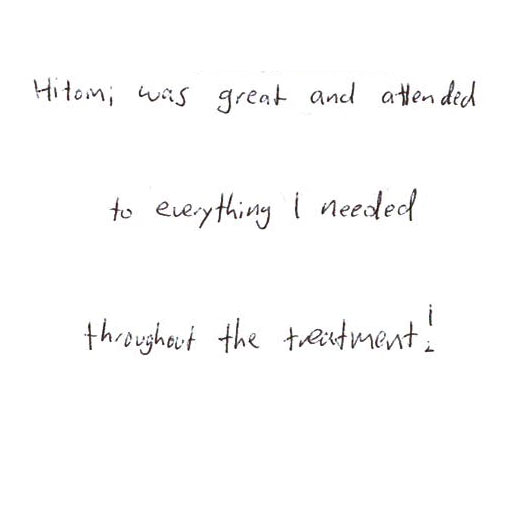 Hitomi was great and attended
to everything I needed
throughout the treatment!